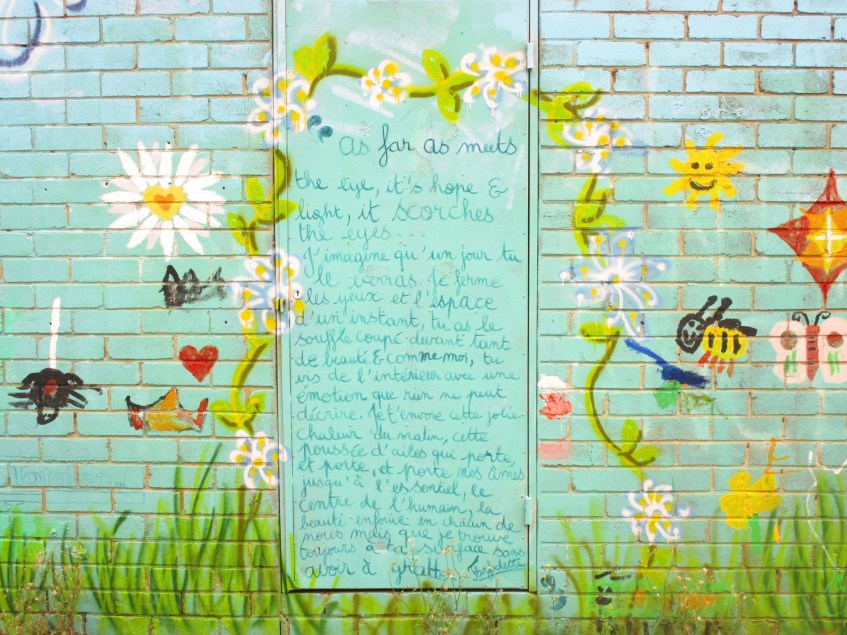 as far as meets
the eye, it's hope &
light, it scorches
the eyes...
J'imagine qu'un jour tu
le verras. Je ferme
les yeux et l'espace
d'un instant, tu as le
souffle coupé durant tant
de beauté & comme moi, tu
vis de l'intérieur avec une
émotion que rien ne peut
décrire. Je t'envoie cette jolie
chaleur du matin, cette
poussée d'ailes qui porte,
et porte, et porte nos âmes
jusqu'à l'essentiel, le
centre de l'humain, la
beauté enfouie en chacun de
nous mais que je trouve
toujours à la surface sans
avoir à gratter